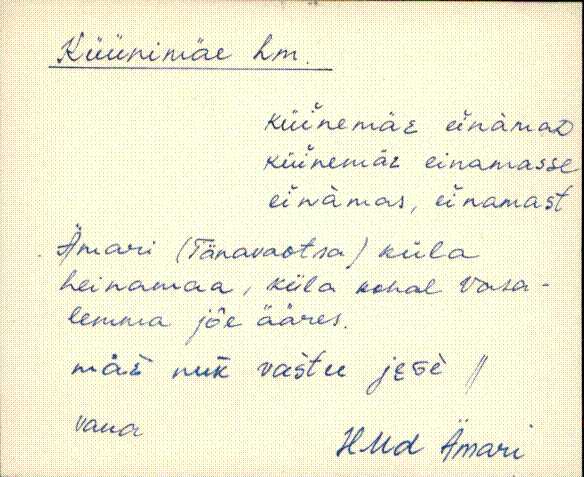 Küünimäe hm.
küünemäe einämaD
küünemäe einamasse
einämas, einamast
Ämari (Tänavaotsa) küla
heinamaa, küla kohal Vasa-
lemma jõe ääres.
mäe nuk vastu jege //
vana
HMd Ämari